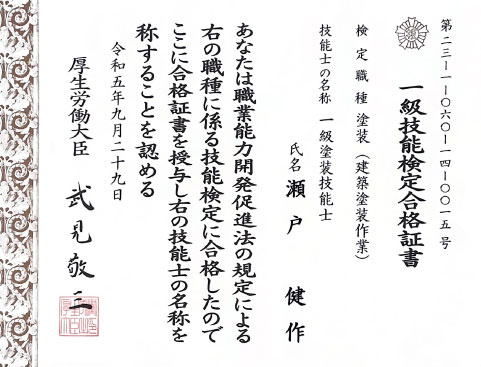 第二三ー一ー〇六〇ー一四ー〇〇一五号
一級技能検定合格証書
検定職種 塗装（建築塗装作業）
技能士の名称 一級塗装技能士
氏名 瀬戸 健作
あなたは職業能力開発促進法の規定による
右の職種に係る技能検定に合格したので
ここに合格証書を授与し右の技能士の名称を
称することを認める
令和五年九月二十九日
厚生労働大臣 武見敬三